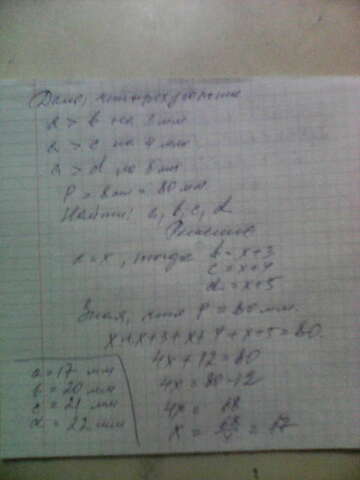 Дано: четырехугольник
a > b на 3 мм
a > c на 4 мм
a > d на 5 мм
P = 8 см = 80 мм.
Найти: a, b, c, d
Решение
a = x, тогда b = x+3
c = x+4
d = x+5
Зная, что P = 80 мм.
x+x+3+x+4+x+5=80
4x+12=80
4x=80-12
4x= 68
x = 68/4 = 17
a = 17 мм
b = 20 мм
c = 21 мм
d = 22 мм